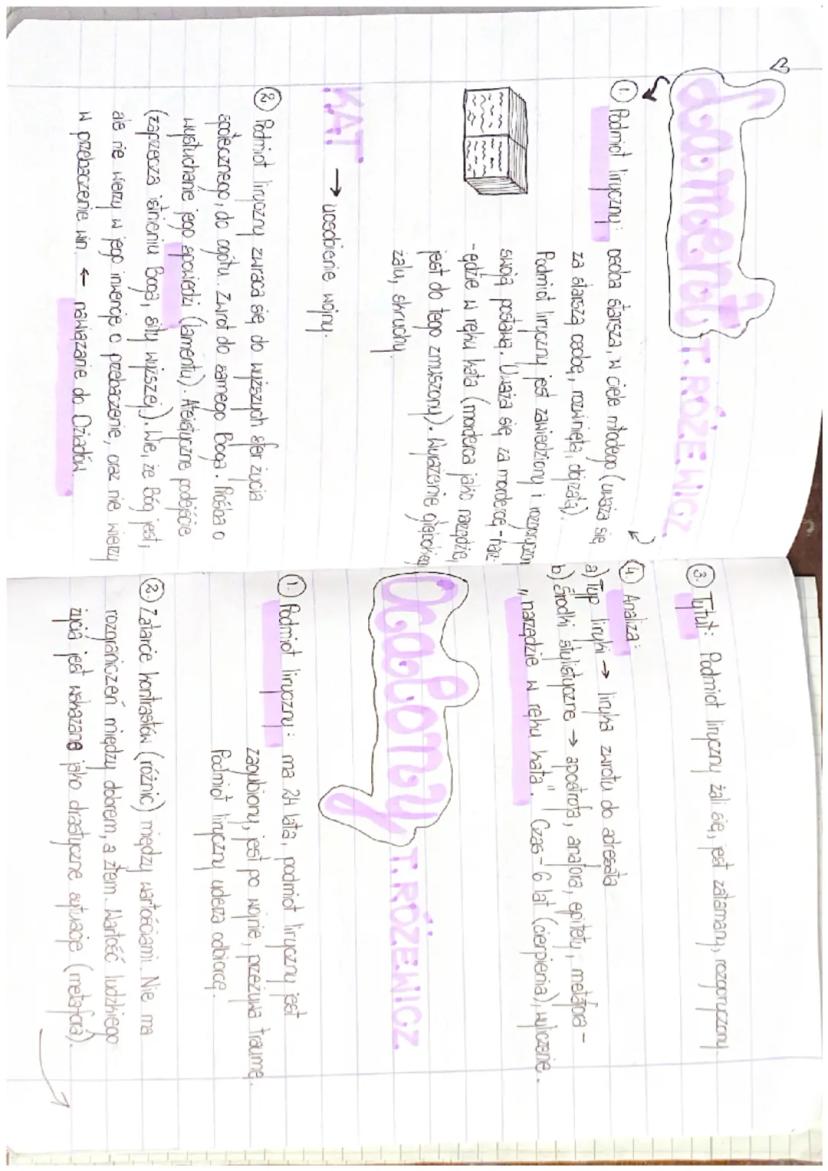 Lament T. RÓŻEWICZ
① Podmiot liryczny: osoba starsza, w ciele młodego (uważa się
za starszą osobę, rozwiniętą, dojrzałą).
Podmiot liryczny jest zawiedziony i rozgoryczony
swoją postawą. Uważa się za mordercę - narz-
-ędzie w ręku kata (morderca jako narzędzie,
jest do tego zmuszony). Wyrażenie głębokiego
żalu, skruchy.
KAT → uosobienie wojny.
② Podmiot liryczny zwraca się do wyższych sfer życia
społecznego, do ogółu. Zwrot do samego Boga. Prośba o
wysłuchanie jego spowiedzi (lamentu). Ateistyczne podejście
(zaprzecza istnieniu Boga, siły wyższej). Wie, że Bóg jest,
ale nie wierzy w jego intencje o przebaczenie, oraz nie wierzy
w przebaczenie win. ← nawiązanie do Dziadów.
③. Tytuł: Podmiot liryczny żali się, jest załamany, rozgoryczony.
④. Analiza:
a) Typ liryki → liryka zwrotu do adresata
b) Środki stylistyczne → apostrofa, anafora, epitety, metafora -
„narzędzie w ręku kata." Czas - 6 lat (cierpienia), wyliczenie.
Ocalony T. RÓŻEWICZ
①. Podmiot liryczny: ma 24 lata, podmiot liryczny jest
zagubiony, jest po wojnie, przeżywa traumę.
Podmiot liryczny uderza odbiorcę.
②. Zatarcie kontrastów (różnic) między wartościami. Nie ma
rozgraniczeń między dobrem, a złem. Wartość ludzkiego
życia jest wskazana jako drastyczne sytuacje (metafora).